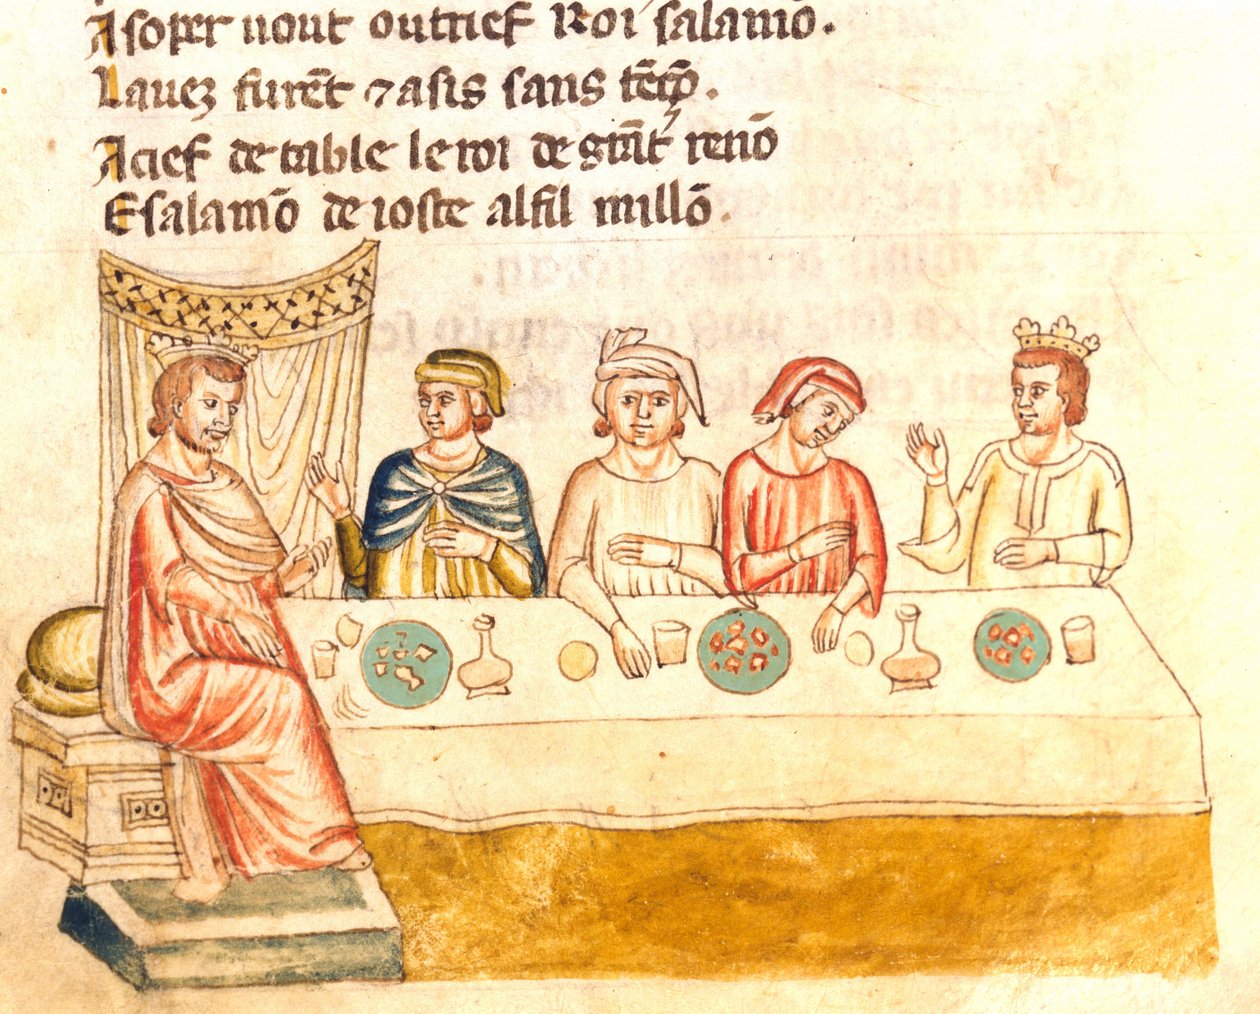 Asoper uont outrief Roi salamō.
Lauez furēt ⁊ asis sans tēçō.
Acief de table le roi de grāt renō
E salamō de ioste al fil millō.